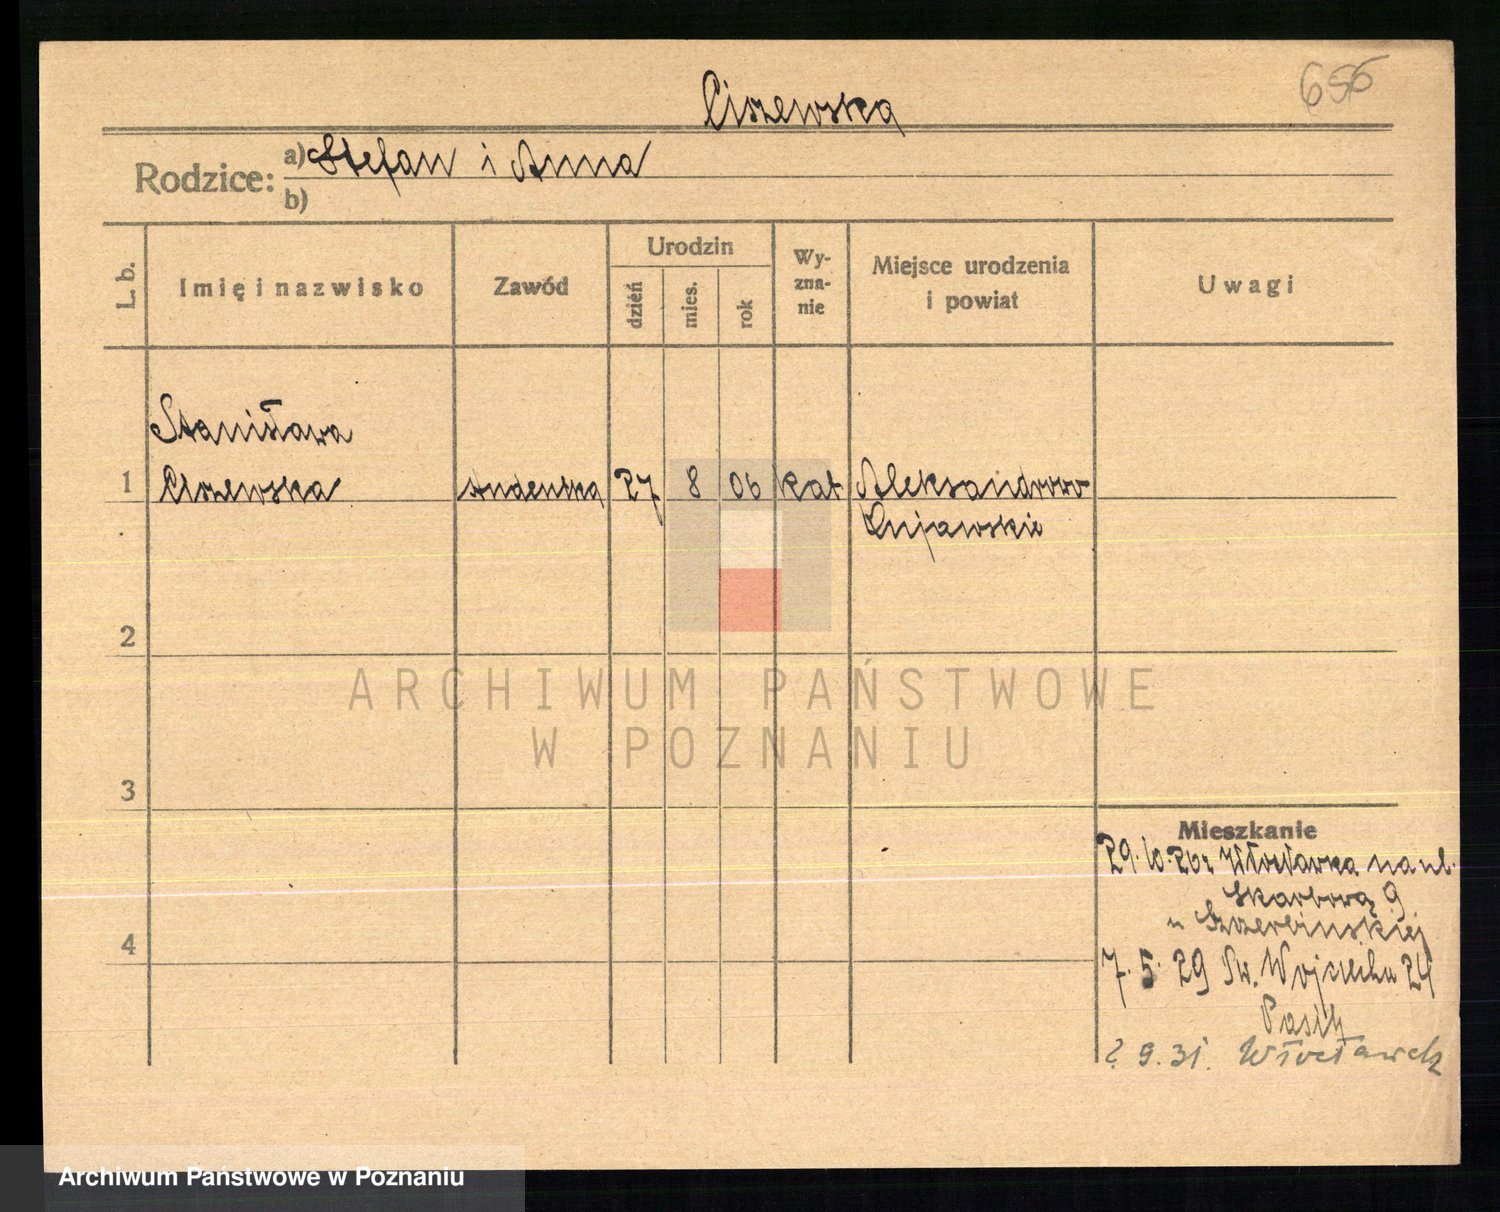 656
Ciszewska
Rodzice:
a) Stefan i Anna
b)
L. b.
Imię i nazwisko
Zawód
Urodzin
dzień
mies.
rok
Wy-
zna-
nie
Miejsce urodzenia
i powiat
Uwagi
Stanisława
1 Ciszewska studentka 27 8 06 kat Aleksandrowo
Kujawskie
2
3
4
Mieszkanie
29.10.26 z Włocławka na ul.
Skarbową 9
u Szczerbińskiej
7.5.29 Św. Wojciecha 24
9.31. Włocławek
ARCHIWUM PAŃSTWOWE
W POZNANIU
Archiwum Państwowe w Poznaniu